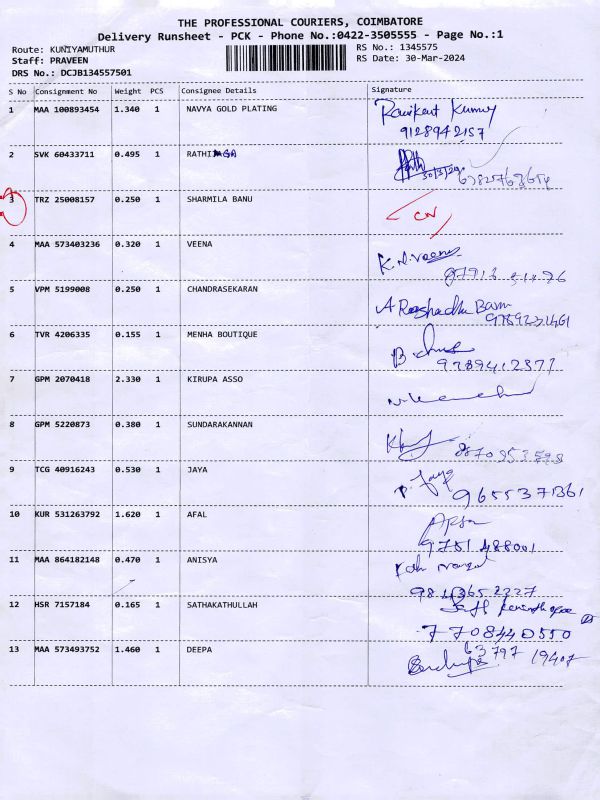 THE PROFESSIONAL COURIERS, COIMBATORE
Delivery Runsheet - PCK - Phone No.:0422-3505555 - Page No.:1
Route: KUNIYAMUTHUR RS No.: 1345575
Staff: PRAVEEN RS Date: 30-Mar-2024
DRS No.: DCJB134557501
S No Consignment No Weight PCS Consignee Details Signature
1 MAA 100893454 1.340 1 NAVYA GOLD PLATING Ravikant Kumar
9128942157
2 SVK 60433711 0.495 1
3 TRZ 25008157 0.250 1 SHARMILA BANU CN
4 MAA 573403236 0.320 1 VEENA K.N.Veena
5 VPM 5199008 0.250 1 CHANDRASEKARAN
6 TVR 4206335 0.155 1 MENHA BOUTIQUE
9789412377
7 GPM 2070418 2.330 1 KIRUPA ASSO
8 GPM 5220873 0.380 1 SUNDARAKANNAN
9 TCG 40916243 0.530 1 JAYA P. Jaya
10 KUR 531263792 1.620 1 AFAL
9751488001
11 MAA 864182148 0.470 1 ANISYA
12 HSR 7157184 0.165 1 SATHAKATHULLAH
7708440550
13 MAA 573493752 1.460 1 DEEPA 63797 19407